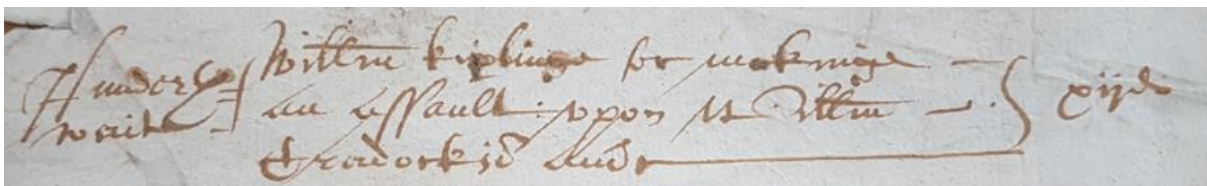 Hunderth=
waite
Willm Kiplinge for mekinge
an assault vpon Mr Willm
Cradock id amd
xijd